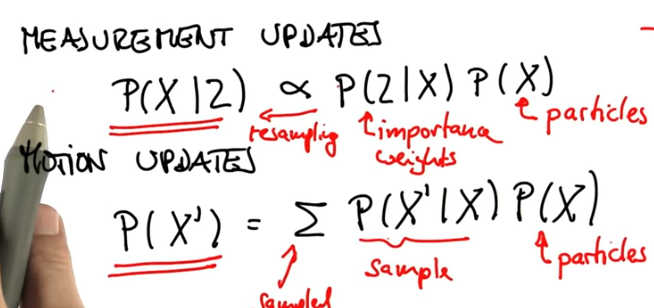 MEASUREMENT UPDATES
P(X|Z) ∝ P(Z|X) P(X)
resampling importance weights particles
MOTION UPDATES
P(X') = Σ P(X'|X) P(X)
sampled sample particles